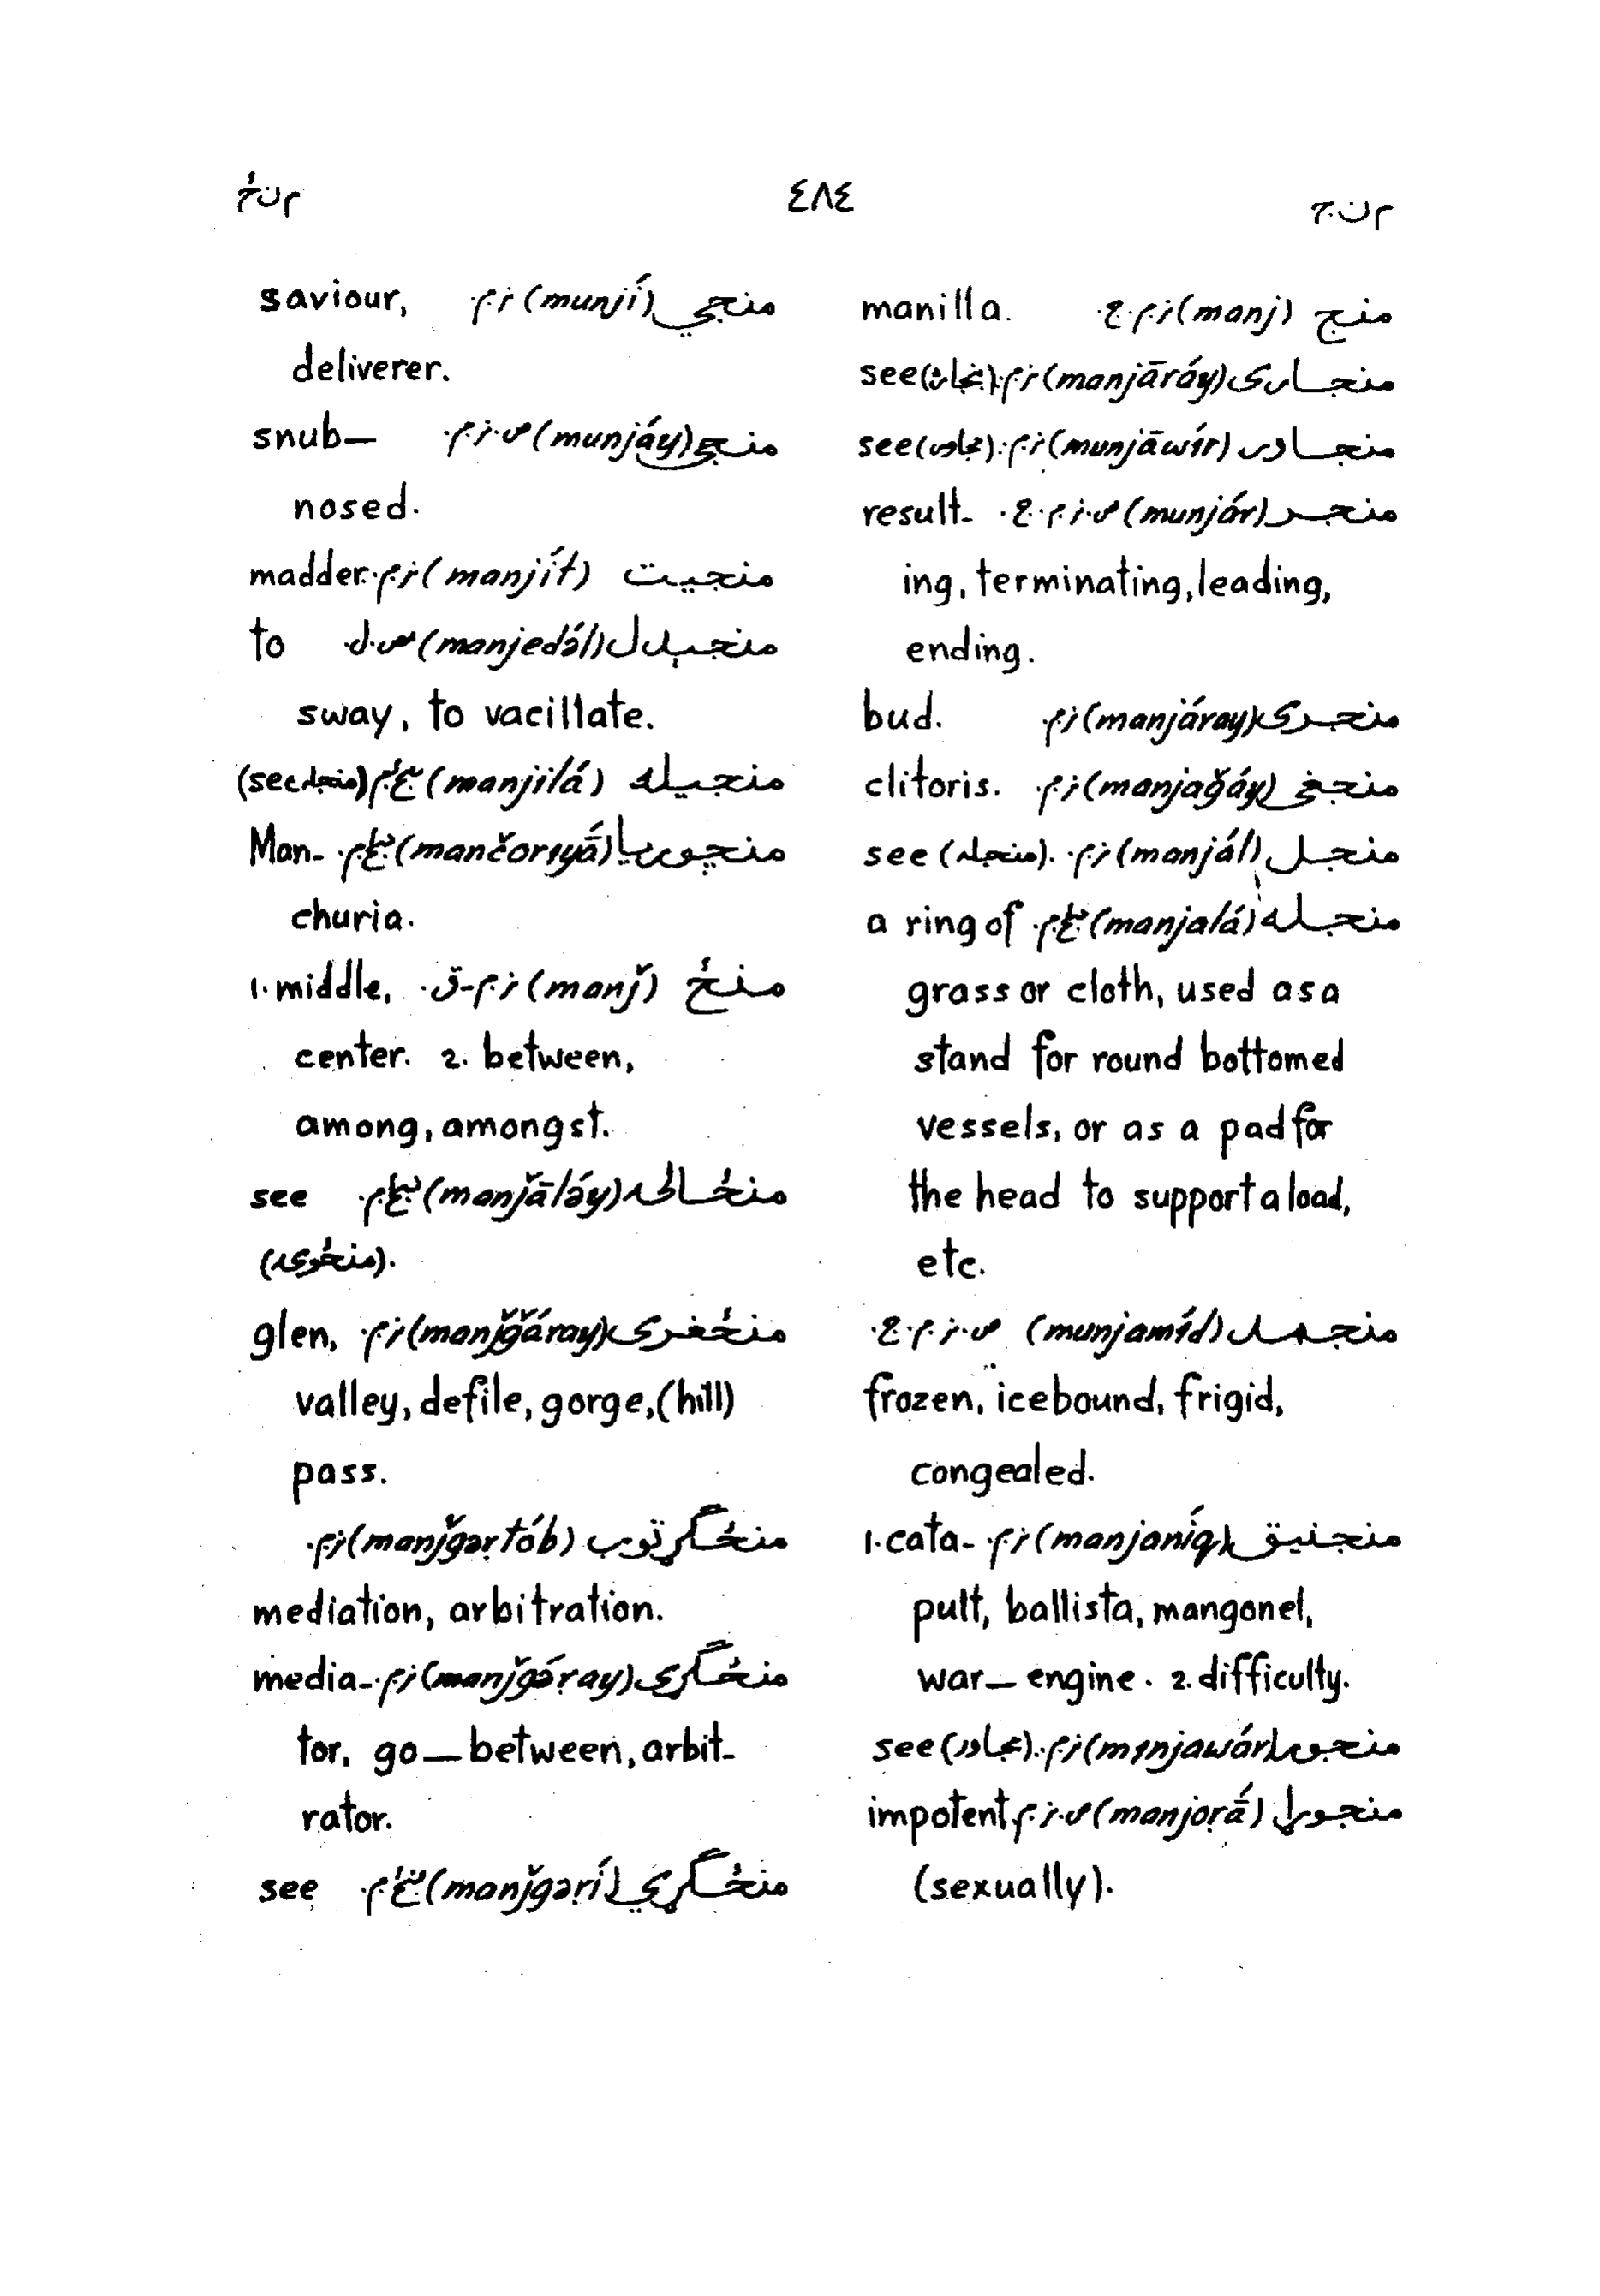 م ن ج ٤٨٤ م ن ځ
منج (manj) ز.م.ع. manilla.
منجاری (manjāráy) ز.م. see
منجاور (munjāwír) ز.م. see (مجاور).
منجر (munjár) ص.ز.م.ع. result-
ing, terminating, leading,
ending.
منجری (manjáray) ز.م. bud.
منجغي (manjağáy) ز.م. clitoris.
منجل (manjál) ز.م. see (منجله).
منجله (manjalá) a ring of
grass or cloth, used as a
stand for round bottomed
vessels, or as a pad for
the head to support a load,
etc.
منجمد (munjamíd) ص.ز.م.ع.
frozen, icebound, frigid,
congealed.
منجنیق (manjaníq) ز.م. 1. cata-
pult, ballista, mangonel,
war—engine. 2. difficulty.
منجور (minjawár) ز.م. see (مجاور).
منجوړا (manjoṛā́) ص.ز.م. impotent
(sexually).
منجي (munjí) ز.م. saviour,
deliverer.
منجي (munjáy) ص.ز.م. snub—
nosed.
منجیت (manjít) ز.م. madder.
منجېدل (manjedə́l) to
sway, to vacillate.
منجیله (manjilá) (see منجله)
منچوریا (mančoriyā́) Man-
churia.
منځ (manǰ) ز.م-ق. 1. middle,
center. 2. between,
among, amongst.
منځاله (manǰāləy) see
(منځوۍ).
منځغری (manǰğáray) ز.م. glen,
valley, defile, gorge, (hill)
pass.
منځګړتوب (manǰgəṛtób) ز.م.
mediation, arbitration.
منځګړی (manǰgə́ṛay) ز.م. media-
tor, go—between, arbit-
rator.
منځګړي (manǰgəṛí) see